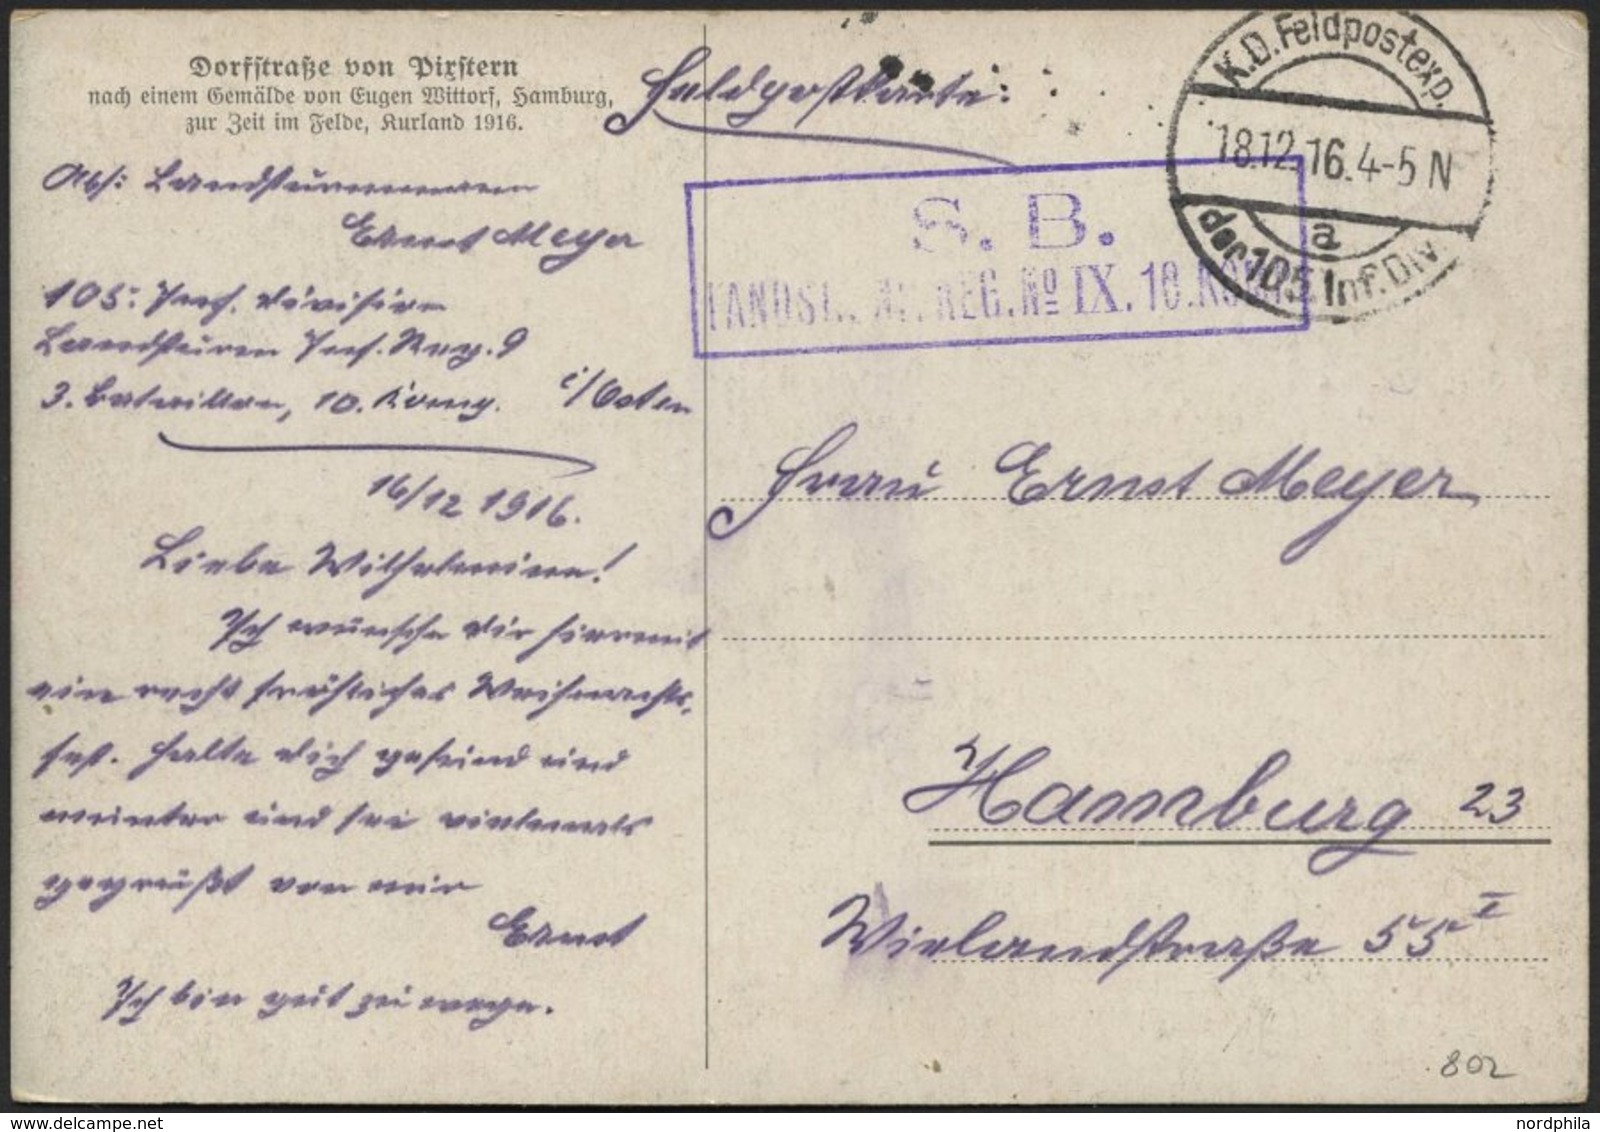 Dorfstraße von Pixstern
nach einem Gemälde von Eugen Wittorf, Hamburg,
zur Zeit im Felde, Kurland 1916.
Feldpostkarte:
K.D. Feldpostexp.
18.12.16. 4-5 N
a
der 105. Inf. Div.
S. B.
LANDST. INF. REG. No IX. 10. KOMP.
Abs: Landsturmmann
Ernst Meyer
105. Inf. Division
Landsturm Inf. Reg. 9
3. Bataillon, 10. Komp. i/Osten
16/12 1916.
Liebe Wilhelmine!
Ich wünsche dir hiermit
ein recht fröhliches Weihnachts-
fest. Halte dich gesund und
munter und sei vielmals
gegrüßt von mir
Ernst
Ich bin gut zu wege.
Frau Ernst Meyer
Hamburg 23
Wielandstraße 55 I
802
nordphila